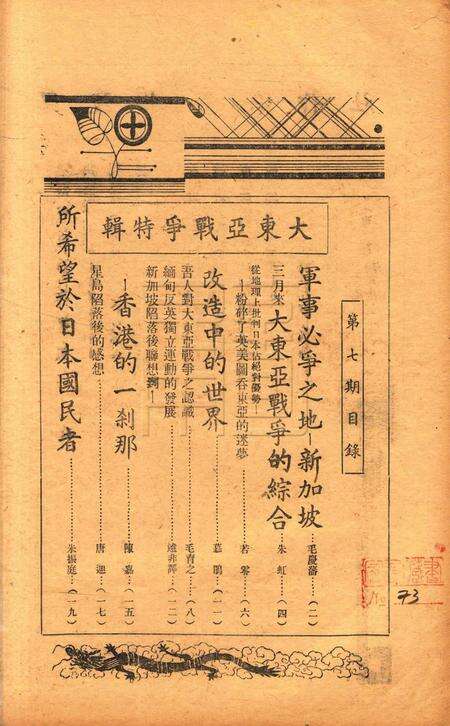 大東亞戰爭特輯
第七期目錄
軍事必爭之地—新加坡……毛慶藩(二)
三月來大東亞戰爭的綜合……朱虹(四)
從地理上批判日本佔絕對優勢—
—粉碎了英美圖吞東亞的迷夢……若零(六)
改造中的世界……葉鵑(一一)
吾人對大東亞戰爭之認識……毛育之(八)
緬甸反英獨立運動的發展……非譯(一二)
新加坡陷落後聯想到—
—香港的一刹那……陳嘉(一五)
星島陷落後的感想……唐遲(一七)
所希望於日本國民者……朱振庭(一九)
No 73